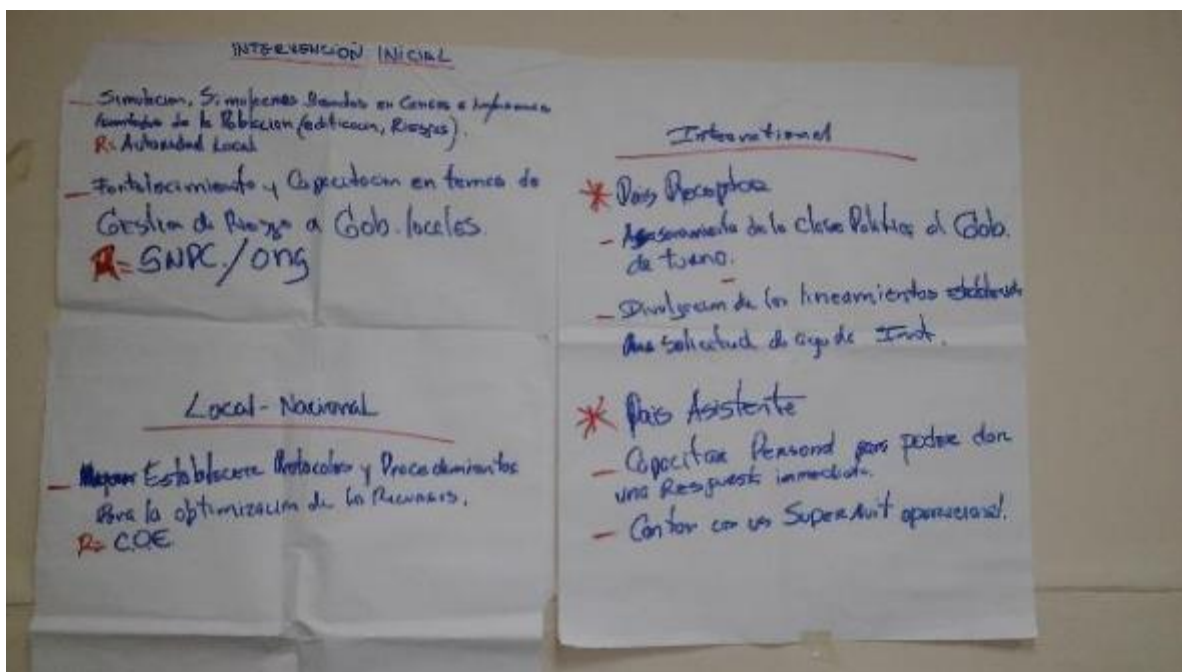 INTERVENCIÓN INICIAL
— Simulacion, Simulacros Basados en Censos e
de la Poblacion (edificacion, Riesgos).
R= Autoridad Local
— Fortalecimiento y Capacitacion en temas de
Gestion de Riesgo a Gob. locales.
R= SNPC/ong
Local-Nacional
— Establecer Protocolos y Procedimientos
Para la optimización de los Recursos.
R= COE
International
* Pais Receptor
— Asesoramiento de la Clase Politica al Gob.
de turno.
— Divulgacion de los lineamientos
solicitud de ayuda Int.
* Pais Asistente
— Capacitar Personal para poder dar
una Respuesta immediata.
— Contar con un SuperAvit operacional.